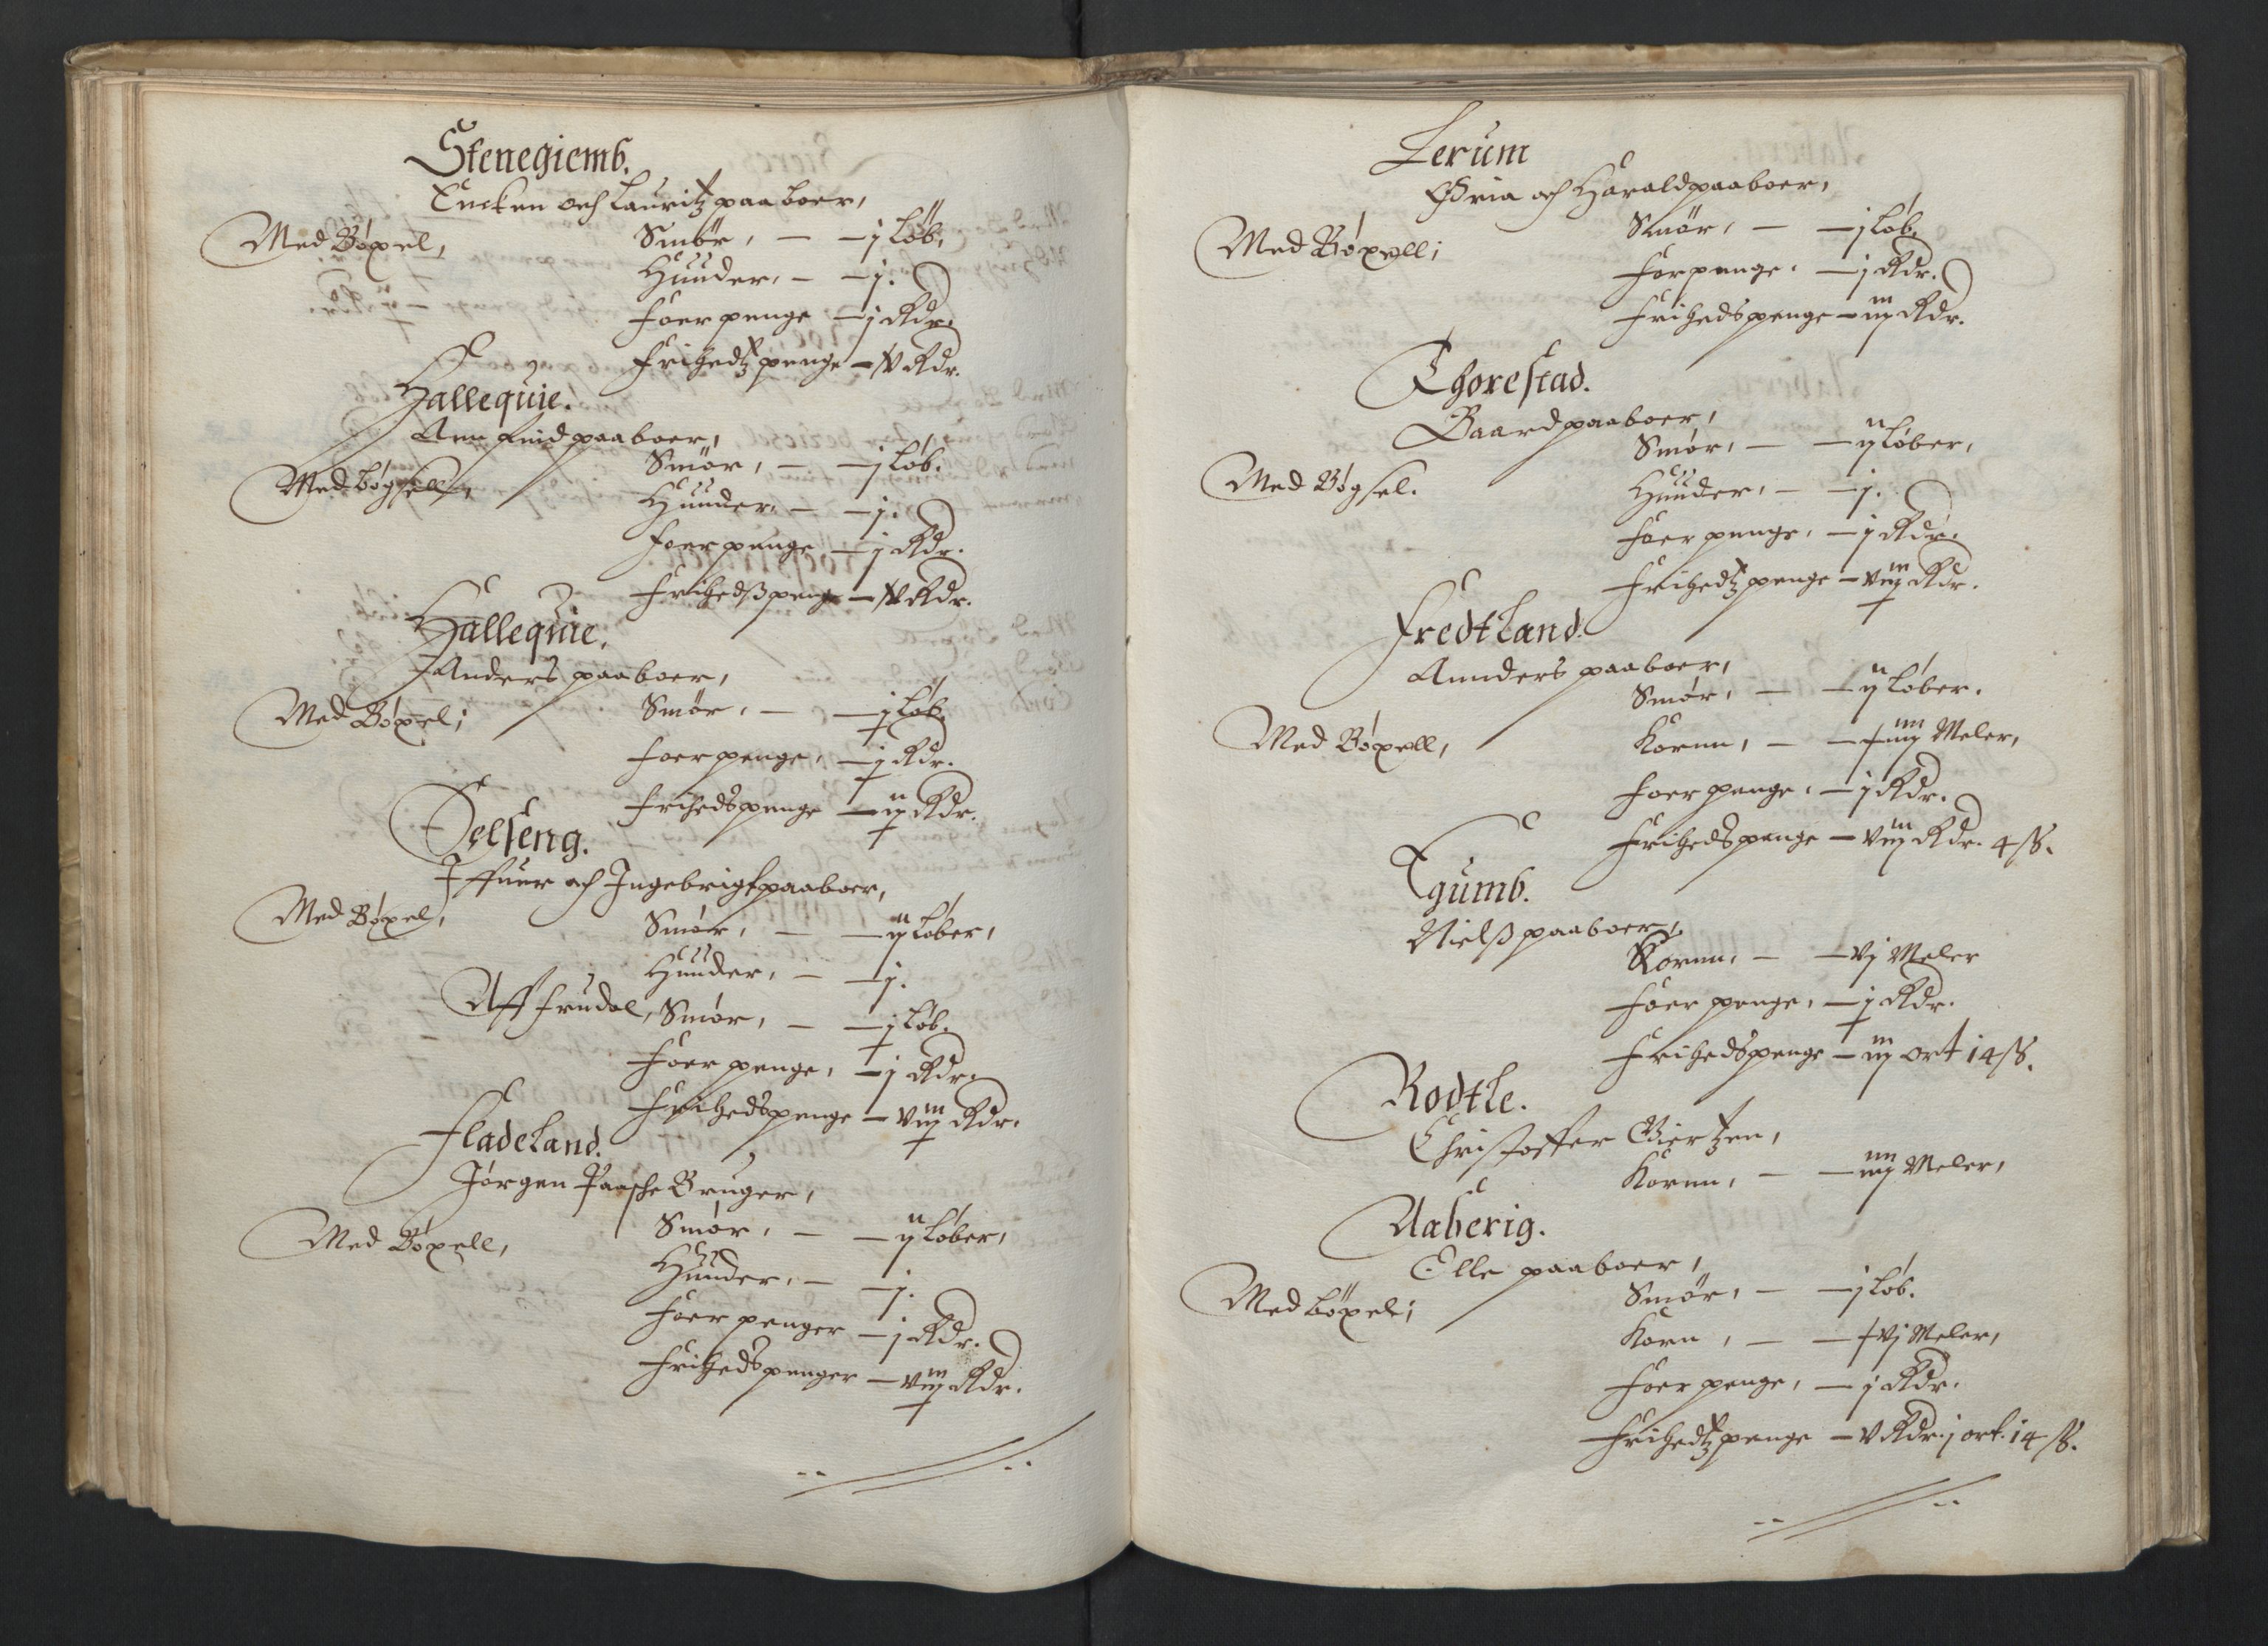 Stenegiemb.
Encken och Lauritz paaboer,
Med Böxel,
Smör, — — j Løb,
Huuder, — — j.
Foer penge — j Rdr.
Frihedtz penge — Rdr.
Hallequie.
Amund paaboer,
Med bögsell,
Smör, — — j Løb.
Huuder, — — j.
Foer penge — j Rdr.
Frihedß penge — Rdr.
Hallequie.
Anders paaboer,
Med Böxel;
Smör, — — j Løb.
Foer penge, — j Rdr.
Frihedspenge — ij Rdr.
Selseng.
Iffuer och Ingebrigt paaboer,
Med Böxel,
Smör, — — ij Løber,
Huuder, — — j.
Aff Frudal, Smör, — — j Løb.
Foer penge, — j Rdr.
Frihedspenge — viij Rdr.
Fladeland.
Jörgen Paasche Bruger,
Med Böxell,
Smör, — — ij Løber,
Huuder, — — j.
Foer penger — j Rdr.
Frihedspenger — viij Rdr.
Lerum
Haraldpaaboer,
Med Böxell;
Smör, — — j Løb.
Forpenge. — j Rdr.
Frihedspenge — iij Rdr.
Thorestad.
Baard paaboer,
Med Bögsel.
Smör, — — ij Løber,
Huuder, — — j.
Foer penge, — j Rdr.
Frihedtz penge — viij Rdr.
Fredtland.
Annders paaboer,
Med Böxell,
Smör, — — ij Løber.
Kornn, — — iiij Meler,
Foer penge, — j Rdr.
Frihedspenge — viij Rdr. 4 ß.
Egumb.
Nielß paaboer,
Kornn, — — vj Meler
Foer penge, — j Rdr.
Frihedspenge — iij ort 14 ß.
Rodtle.
Christoffer Giertzen,
Kornn, — — iiij Meler,
Aaberig.
Elle paaboer,
Med böxel;
Smör, — — j Løb.
Korn, — — vj Meler,
Foer penge, — j Rdr.
Frihedtz penge — v Rdr. j ort. 14 ß.